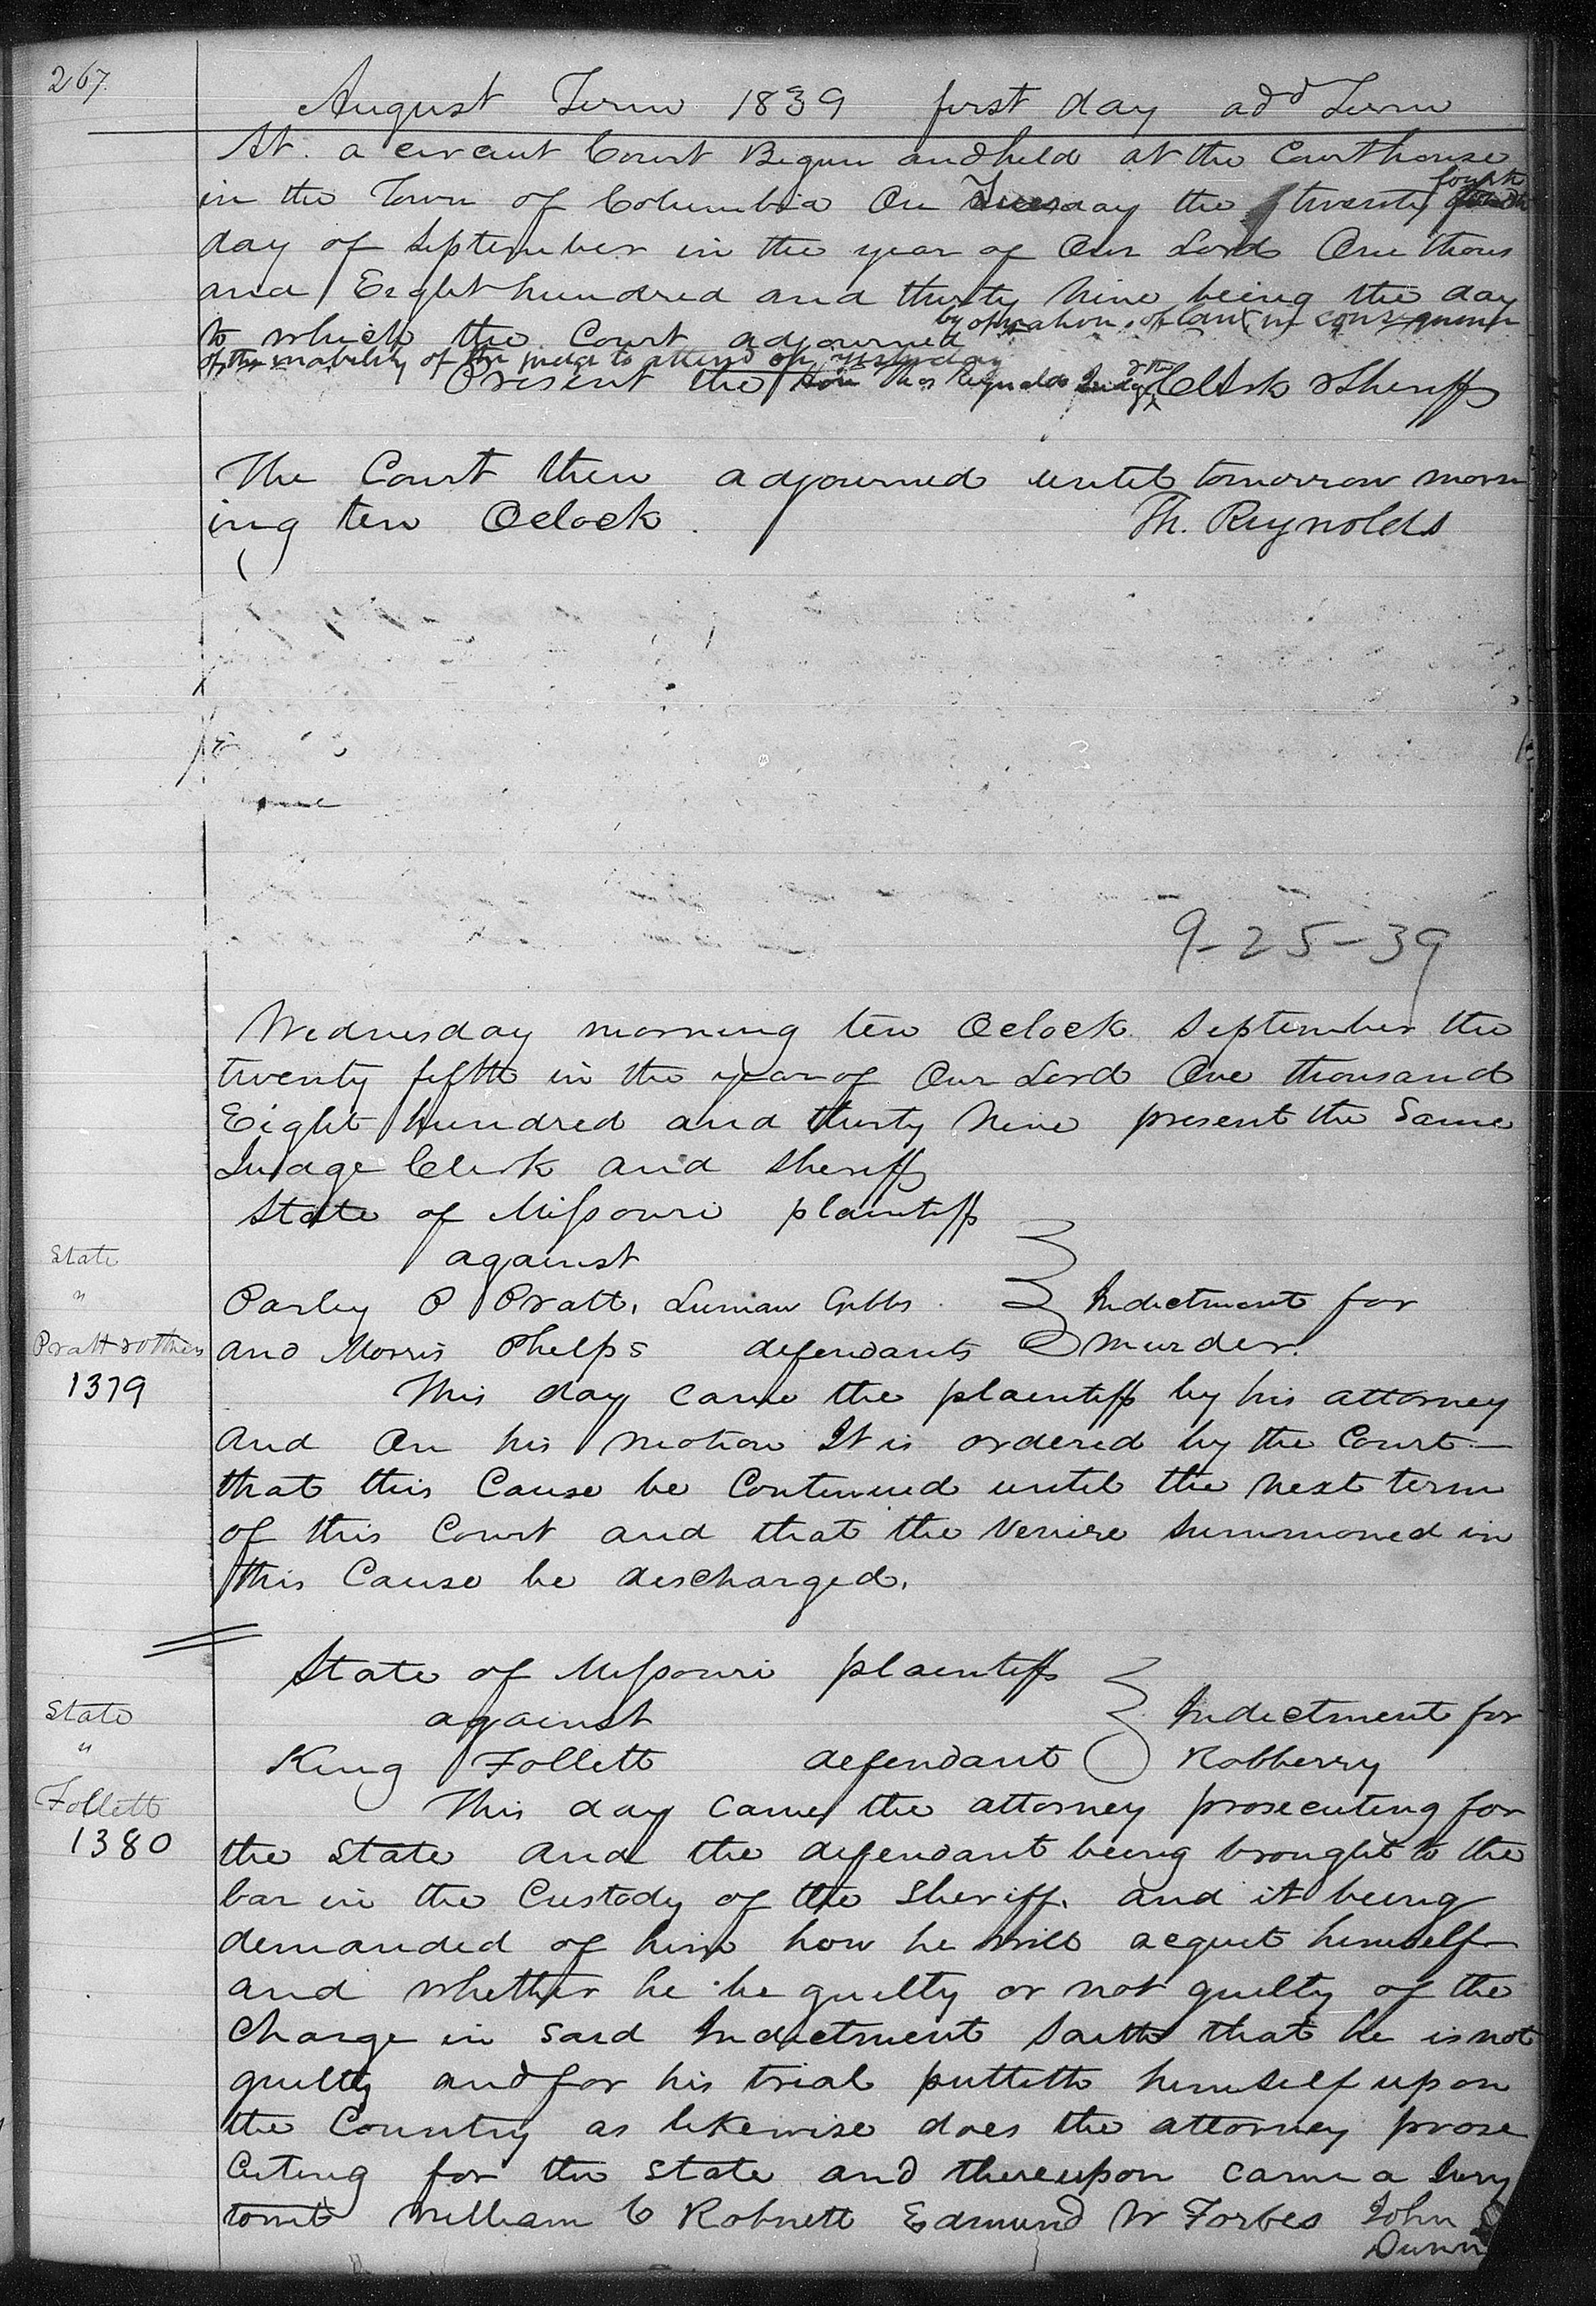 267.
August Term 1839 first day add Term
At. a circuit Court Begun and held at the Courthouse
in the Town of Columbia On Tuesday the twenty fourth
day of September in the year of Our Lord One thous
and Eight hundred and thirty Nine being the day
to which the Court adjourned by operation of law in consequence
of the inability of the judge to attend on yesterday
Present the Hon Thos Reynolds Judge & the Clerk & Sheriff
The Court then adjourned until tomorrow morn
ing ten Oclock. Th. Reynolds
9-25-39
Wednesday morning ten Oclock September the
twenty fifth in the year of Our Lord One thousand
Eight hundred and thirty Nine present the Same
Judge Clerk and Sheriff
State of Missouri plaintiff
against
Parley P Pratt, Luman Gibbs Indictment for
and Morris Phelps defendants murder.
State
"
Pratt & others
1379
This day came the plaintiff by his attorney
and On his motion It is ordered by the Court
that this Cause be Continued until the next term
of this Court and that the Venire summoned in
this Cause be discharged.
State of Missouri plaintiff
against Indictment for
King Follett defendant Robberry
State
"
Follett
1380
This day came the attorney prosecuting for
the State and the defendant being brought to the
bar in the Custody of the Sheriff, and it being
demanded of him how he will acquit himself
and whether he be guilty or not guilty of the
Charge in Said Indictment Saith that he is not
guilty and for his trial putteth himself upon
the Country as likewise does the attorney prose
Cuting for the State and thereupon came a Jury
towit William C Robnett Edmund W Forbes John
Dunn